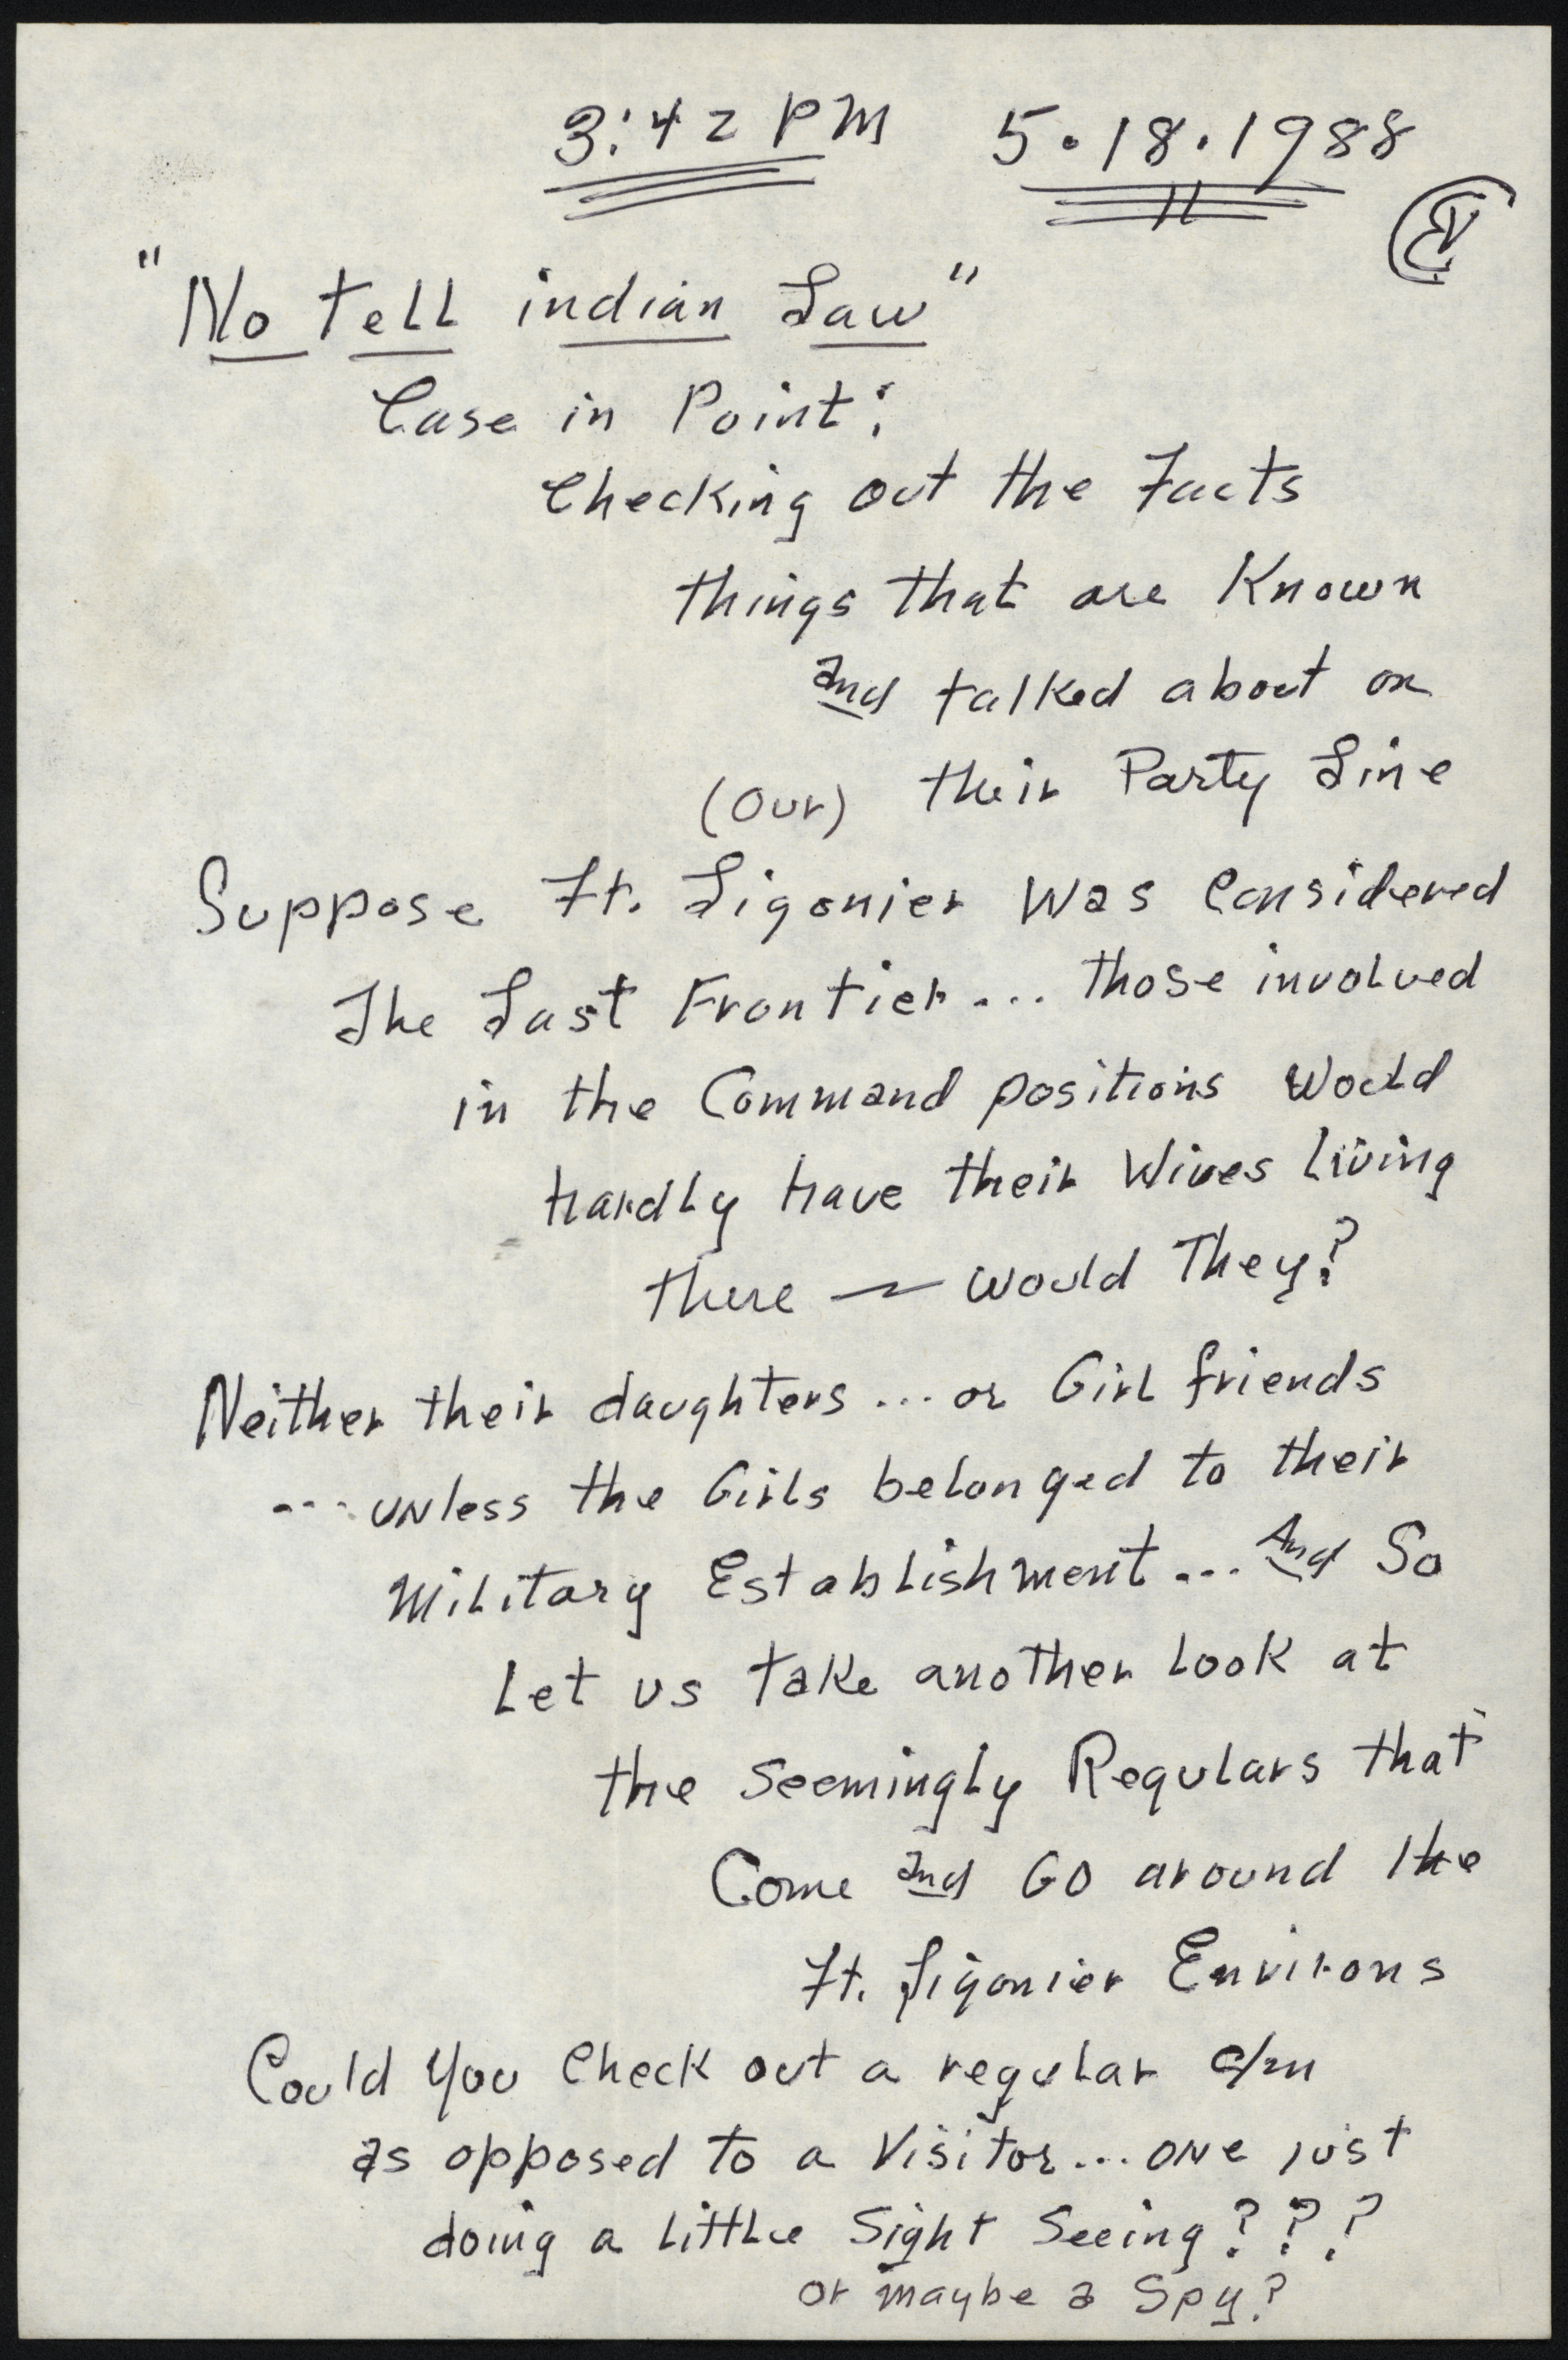 3:42 PM 5.18.1988
"No tell indian Law"
Case in Point:
Checking out the Facts
things that are Known
and talked about on
(our) their Party Line
Suppose Ft. Ligonier was Considered
The Last Frontier... those involved
in the Command positions would
hardly have their Wives living
there — would They?
Neither their daughters... or Girl friends
... unless the Girls belonged to their
Military Establishment... And So
Let us take another look at
the seemingly Regulars that
Come and GO around the
Ft. Ligonier Environs
Could you Check out a regular
as opposed to a Visitor... one just
doing a little Sight Seeing???
or maybe a Spy?